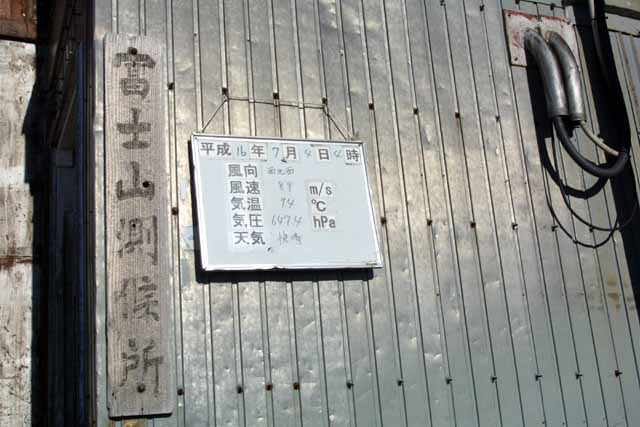 富士山測候所
平成16年7月4日4時
風向 西北西
風速 8.9 m/s
気温 7.4 ℃
気圧 647.4 hPa
天気 快晴